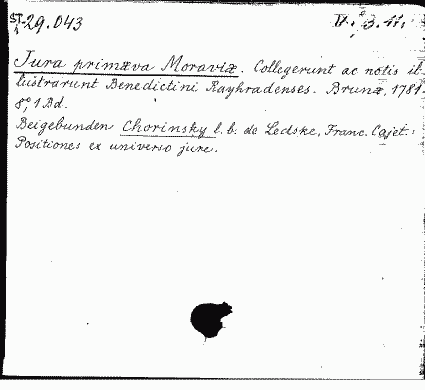 ST 29.043 IV. 3. 41.
Jura primæva Moraviæ. Collegerunt ac notis il
lustrarunt Benedictini Rayhradenses. Brunæ, 1781.
8°, 1 Bd.
Beigebunden Chorinsky l. b. de Ledske, Franc. Cajet.:
Positiones ex universo jure.